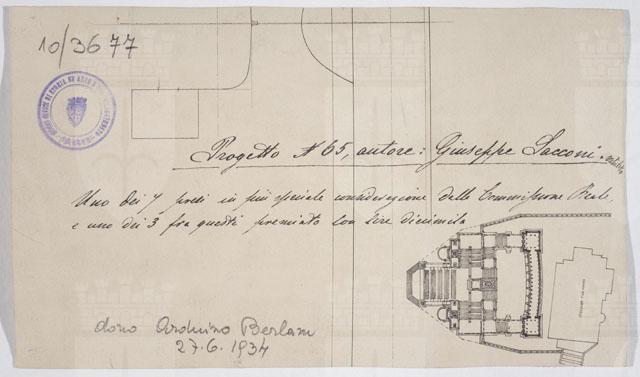 10/3677
Progetto N 65, autore: Giuseppe Sacconi.
Uno dei 7 presi in più speciale considerazione dalla Commissione Reale,
e uno dei 3 fra questi premiato con lire diecimila
dono Arduino Berlam
27.6.1934